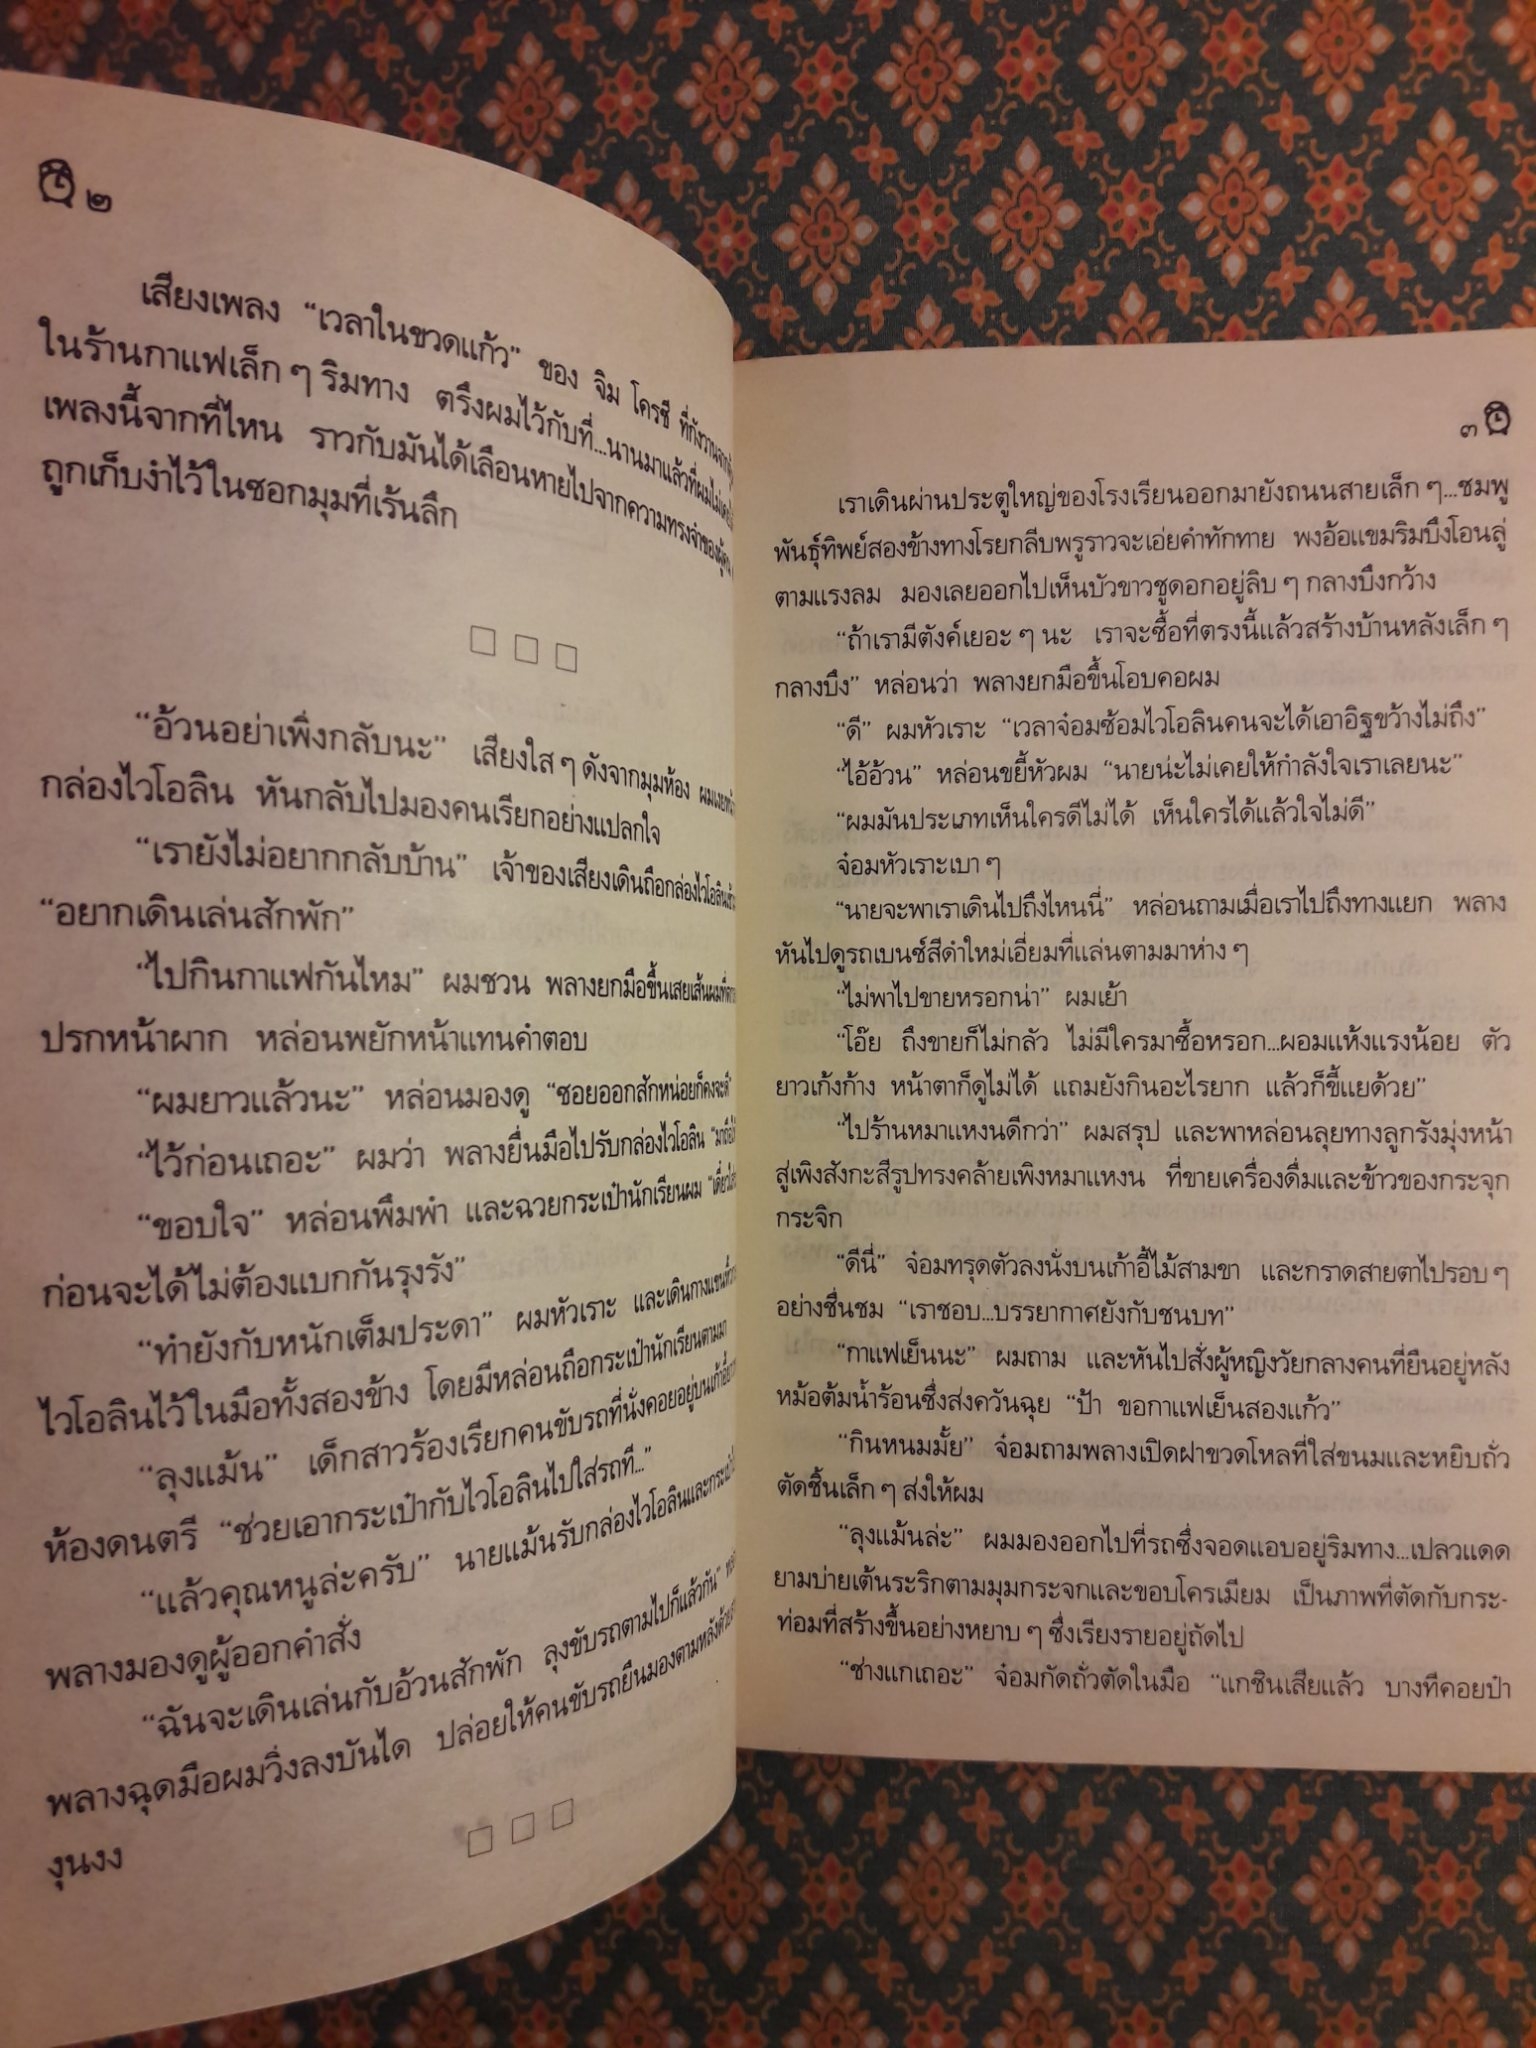 ๒
เสียงเพลง “เวลาในขวดแก้ว” ของ จิม โครซี ที่กังวาน
ในร้านกาแฟเล็ก ๆ ริมทาง ตรึงผมไว้กับที่...นานมาแล้วที่ผมไม่
เพลงนี้จากที่ไหน ราวกับมันได้เลือนหายไปจากความทรงจำของผู้คน
ถูกเก็บงำไว้ในซอกมุมที่เร้นลึก
“อ้วนอย่าเพิ่งกลับนะ” เสียงใส ๆ ดังจากมุมห้อง ผม
กล่องไวโอลิน หันกลับไปมองคนเรียกอย่างแปลกใจ
“เรายังไม่อยากกลับบ้าน” เจ้าของเสียงเดินถือกล่องไวโอลิน
“อยากเดินเล่นสักพัก”
“ไปกินกาแฟกันไหม” ผมชวน พลางยกมือขึ้นเสยเส้นผมที่
ปรกหน้าผาก หล่อนพยักหน้าแทนคำตอบ
“ผมยาวแล้วนะ” หล่อนมองดู “ซอยออกสักหน่อยก็คงจะดี”
“ไว้ก่อนเถอะ” ผมว่า พลางยื่นมือไปรับกล่องไวโอลิน
“ขอบใจ” หล่อนพึมพำ และฉวยกระเป๋านักเรียนผม
ก่อนจะได้ไม่ต้องแบกกันรุงรัง”
“ทำยังกับหนักเต็มประดา” ผมหัวเราะ และเดินกางแขน
ไวโอลินไว้ในมือทั้งสองข้าง โดยมีหล่อนถือกระเป๋านักเรียนตามมา
“ลุงแม้น” เด็กสาวร้องเรียกคนขับรถที่นั่งคอยอยู่บนเก้าอี้
ห้องดนตรี “ช่วยเอากระเป๋ากับไวโอลินไปใส่รถที...”
“แล้วคุณหนูล่ะครับ” นายแม้นรับกล่องไวโอลินและกระเป๋า
พลางมองดูผู้ออกคำสั่ง
“ฉันจะเดินเล่นกับอ้วนสักพัก ลุงขับรถตามไปก็แล้วกัน”
พลางฉุดมือผมวิ่งลงบันได ปล่อยให้คนขับรถยืนมองตามหลังด้วย
งุนงง
๓
เราเดินผ่านประตูใหญ่ของโรงเรียนออกมายังถนนสายเล็ก ๆ...ชมพู
พันธุ์ทิพย์สองข้างทางโรยกลีบพรูราวจะเอ่ยคำทักทาย พงอ้อแขมริมบึงโอนลู่
ตามแรงลม มองเลยออกไปเห็นบัวขาวชูดอกอยู่ลิบ ๆ กลางบึงกว้าง
“ถ้าเรามีตังค์เยอะ ๆ นะ เราจะซื้อที่ตรงนี้แล้วสร้างบ้านหลังเล็ก ๆ
กลางบึง” หล่อนว่า พลางยกมือขึ้นโอบคอผม
“ดี” ผมหัวเราะ “เวลาจ๋อมซ้อมไวโอลินคนจะได้เอาอิฐขว้างไม่ถึง”
“ไอ้อ้วน” หล่อนขยี้หัวผม “นายน่ะไม่เคยให้กำลังใจเราเลยนะ”
“ผมมันประเภทเห็นใครดีไม่ได้ เห็นใครได้แล้วใจไม่ดี”
จ๋อมหัวเราะเบา ๆ
“นายจะพาเราเดินไปถึงไหนนี่” หล่อนถามเมื่อเราไปถึงทางแยก พลาง
หันไปดูรถเบนซ์สีดำใหม่เอี่ยมที่แล่นตามมาห่าง ๆ
“ไม่พาไปขายหรอกน่า” ผมเย้า
“โอ๊ย ถึงขายก็ไม่กลัว ไม่มีใครมาซื้อหรอก...ผอมแห้งแรงน้อย ตัว
ยาวเก้งก้าง หน้าตาก็ดูไม่ได้ แถมยังกินอะไรยาก แล้วก็ขี้แยด้วย”
“ไปร้านหมาแหงนดีกว่า” ผมสรุป และพาหล่อนลุยทางลูกรังมุ่งหน้า
สู่เพิงสังกะสีรูปทรงคล้ายเพิงหมาแหงน ที่ขายเครื่องดื่มและข้าวของกระจุก
กระจิก
“ดีนี่” จ๋อมทรุดตัวลงนั่งบนเก้าอี้ไม้สามขา และกราดสายตาไปรอบ ๆ
อย่างชื่นชม “เราชอบ...บรรยากาศยังกับชนบท”
“กาแฟเย็นนะ” ผมถาม และหันไปสั่งผู้หญิงวัยกลางคนที่ยืนอยู่หลัง
หม้อต้มน้ำร้อนซึ่งส่งควันฉุย “ป้า ขอกาแฟเย็นสองแก้ว”
“กินหนมมั้ย” จ๋อมถามพลางเปิดฝาขวดโหลที่ใส่ขนมและหยิบถั่ว
ตัดชิ้นเล็ก ๆ ส่งให้ผม
“ลุงแม้นล่ะ” ผมมองออกไปที่รถซึ่งจอดแอบอยู่ริมทาง...เปลวแดด
ยามบ่ายเต้นระริกตามมุมกระจกและขอบโครเมียม เป็นภาพที่ตัดกับกระ-
ท่อมที่สร้างขึ้นอย่างหยาบ ๆ ซึ่งเรียงรายอยู่ถัดไป
“ช่างแกเถอะ” จ๋อมกัดถั่วตัดในมือ “แกชินเสียแล้ว บางทีคอยป๋า